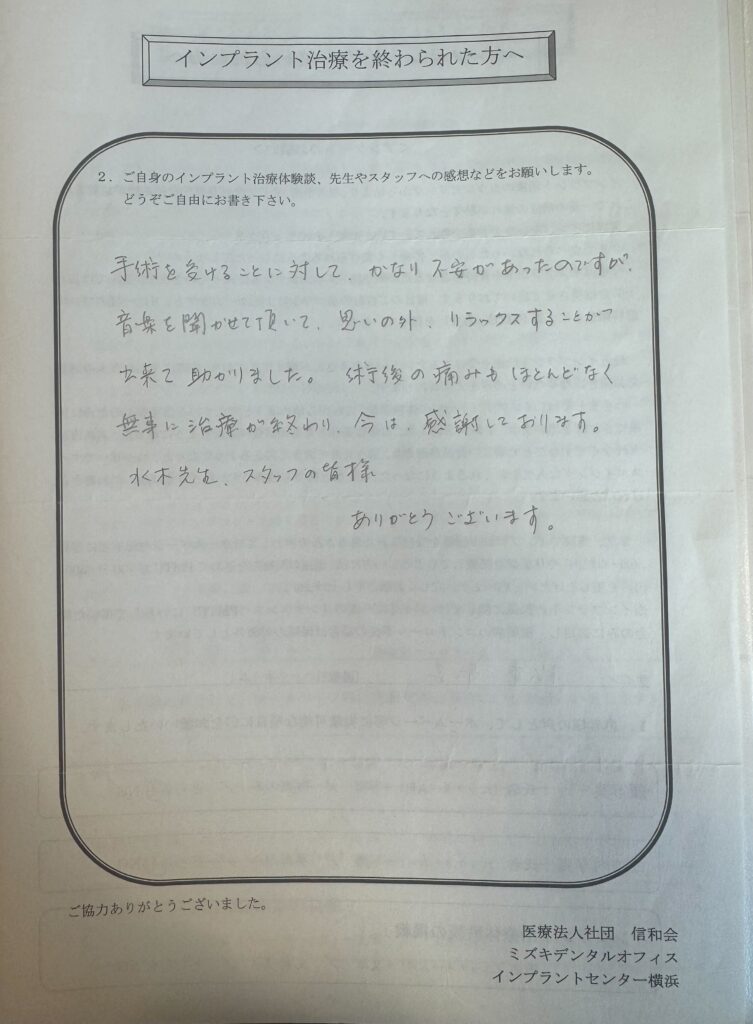 インプラント治療を終わられた方へ
2．ご自身のインプラント治療体験談、先生やスタッフへの感想などをお願いします。
どうぞご自由にお書き下さい。
手術を受けることに対して、かなり不安があったのですが、
音楽を聞かせて頂いて、思いの外、リラックスすることが
出来て助かりました。術後の痛みもほとんどなく
無事に治療が終わり、今は、感謝しております。
水木先生、スタッフの皆様
ありがとうございます。
ご協力ありがとうございました。
医療法人社団　信和会
ミズキデンタルオフィス
インプラントセンター横浜